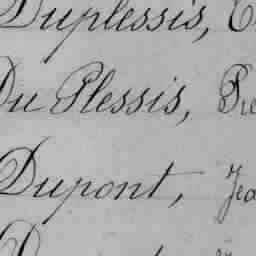 Duplessis,
Du Plessis,
Dupont,